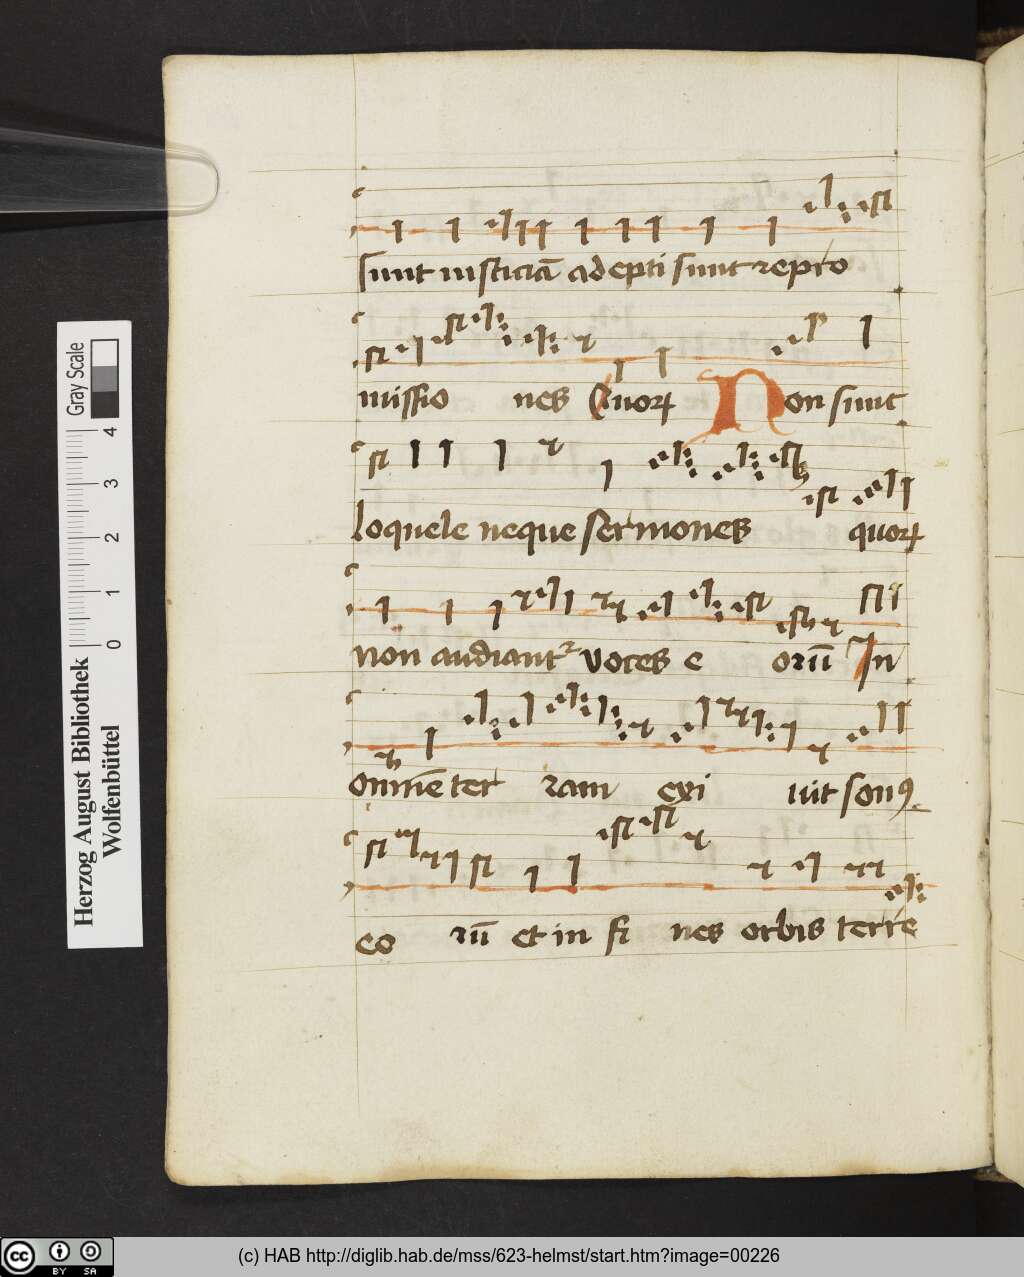 sunt iusticiā adepti sunt repro
missio nes Quorꝝ Non sunt
loquele neque sermones quorꝝ
non audiantᷣ voces e orū In
omnē ter ram exi uit sonꝰ
eo rū et in fi nes orbis terre
Gray Scale
0 1 2 3 4
Herzog August Bibliothek
Wolfenbüttel
cc BY SA
(c) HAB http://diglib.hab.de/mss/623-helmst/start.htm?image=00226